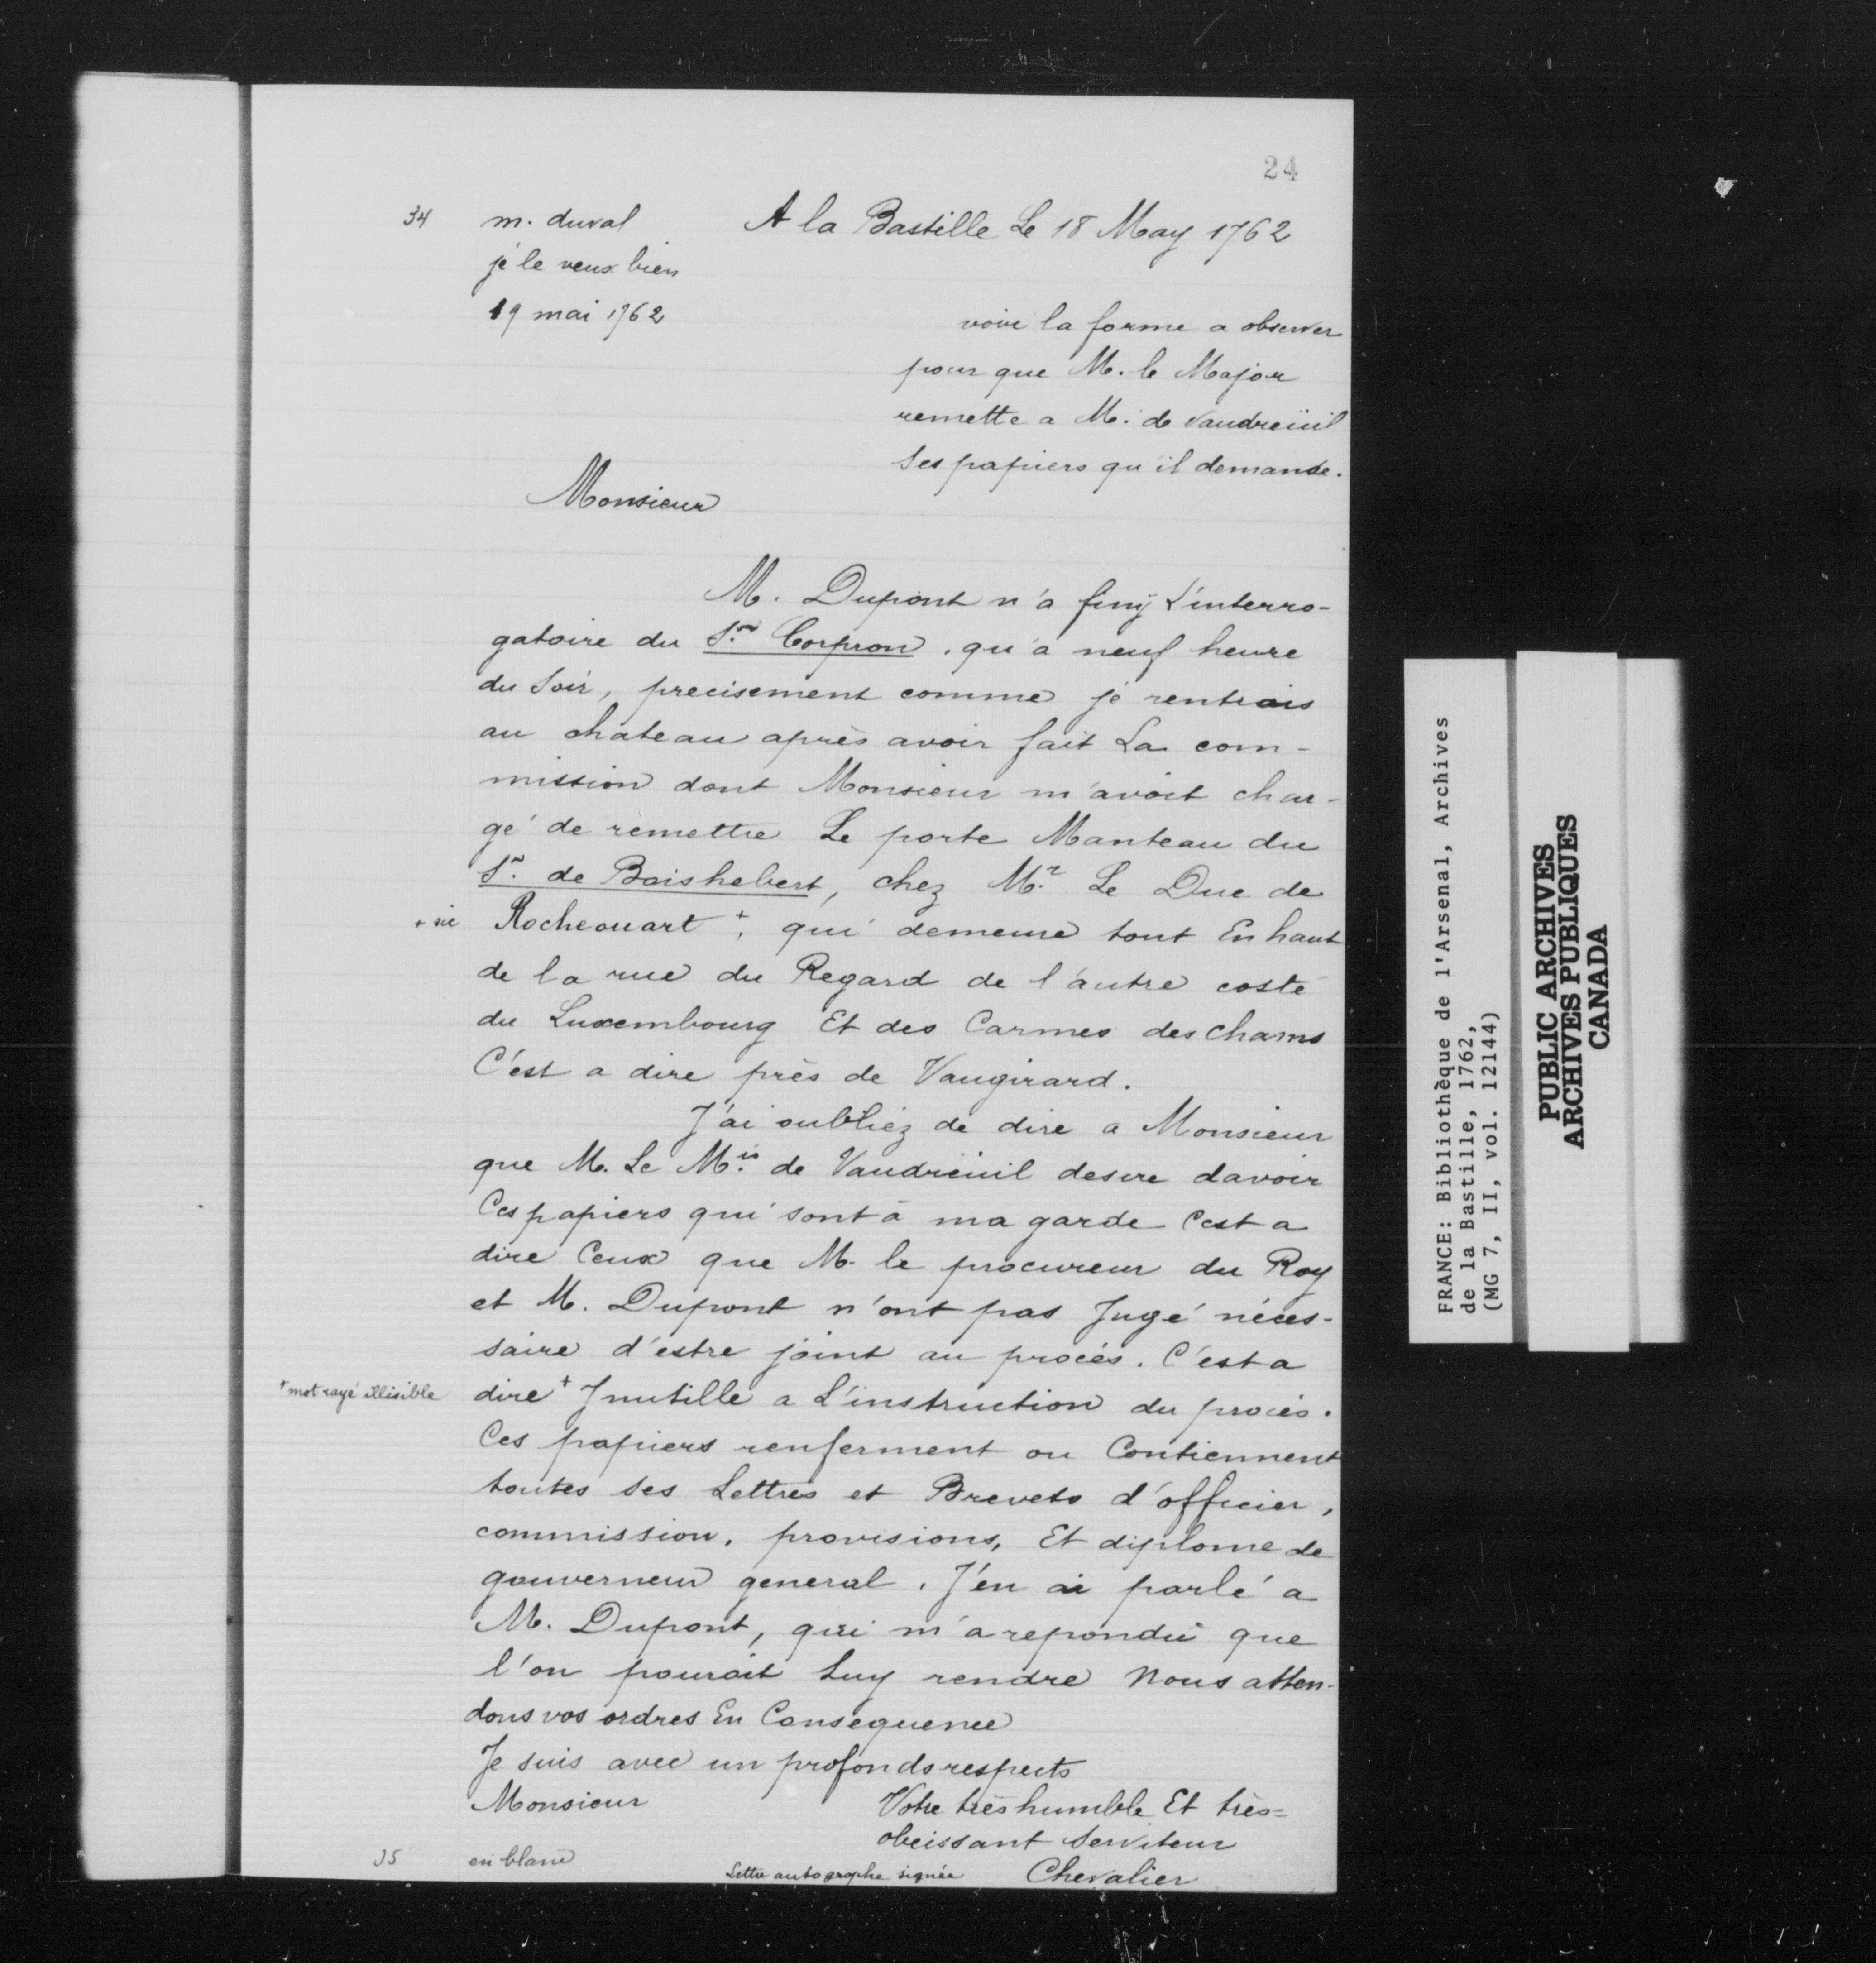 24
34 m. duval A la Bastille Le 18 May 1762
je le veux bien
19 mai 1762
voir la forme a observer
pour que M. le Major
remette a M. de Vaudreüil
ses papiers qu'il demande.
Monsieur
M. Dupont n'a finÿ L'interro-
gatoire du Sr. Corpron. qu'à neuf heure
du Soir, precisement comme je rentrais
au chateau après avoir fait La com-
mission dont Monsieur m'avoit char-
gé de remettre Le porte Manteau du
Sr. de Boishebert, chez Mr. Le Duc de
+ sic Rocheouart +, qui demeure tout En haut
de la rue du Regard de l'autre costé
du Luxembourg Et des Carmes des chams
C'est a dire près de Vaugirard.
J'ai oubliez de dire a Monsieur
que M. Le Mis. de Vaudreüil desire davoir
Ces papiers qui sont à ma garde C'est a
dire Ceux que M. le procureur du Roy
et M. Dupont n'ont pas Jugé néces-
saire d'estre joint au procès. C'est a
+ mot rayé illisible dire + Inutille a L'instruction du procès.
Ces papiers renferment ou Contiennent
toutes ses Lettres et Brevets d'officier,
commission, provisions, Et diplome de
gouverneur general. J'en ai parlé a
M. Dupont, qui m'a repondü que
l'on pouroit Luy rendre Nous atten-
dons vos ordres En Consequence
Je suis avec un profonds respects
Monsieur Votre très humble Et très=
obeissant Serviteur
35 en blanc Lettre autographe signée Chevalier
FRANCE: Bibliothèque de l'Arsenal, Archives
de la Bastille, 1762,
(MG 7, II, vol. 12144)
PUBLIC ARCHIVES
ARCHIVES PUBLIQUES
CANADA